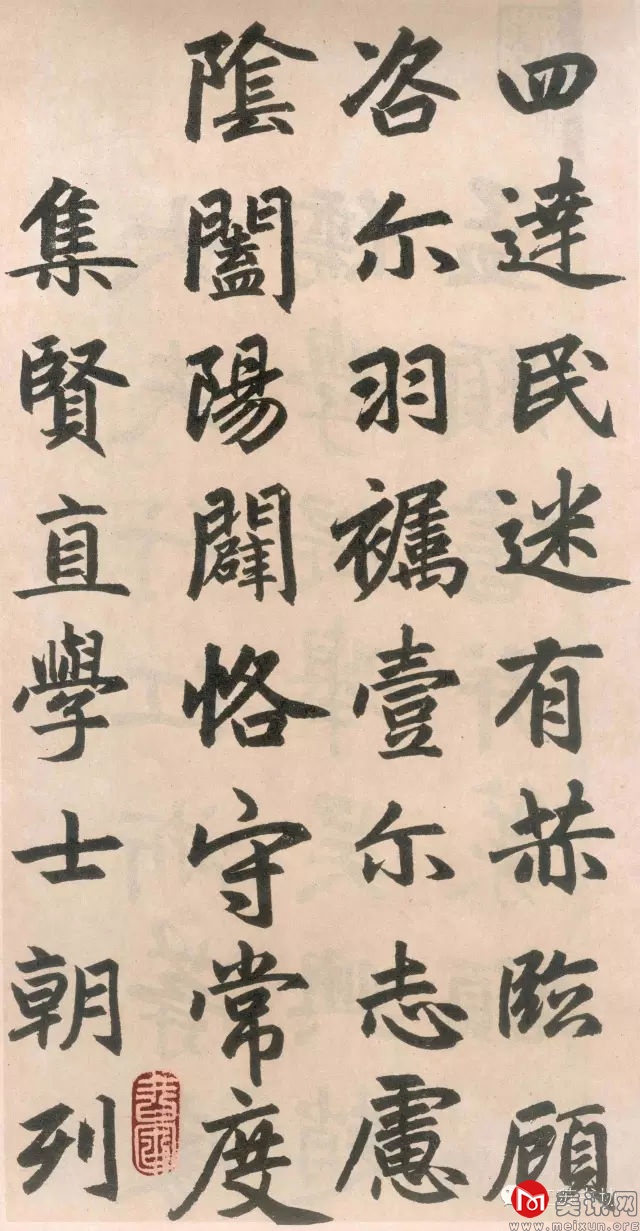 四達民迷有赫臨顧
咨尔羽襹壹尔志慮
陰闔陽闢恪守常度
集賢直學士朝列
美讯网
www.meixun.org